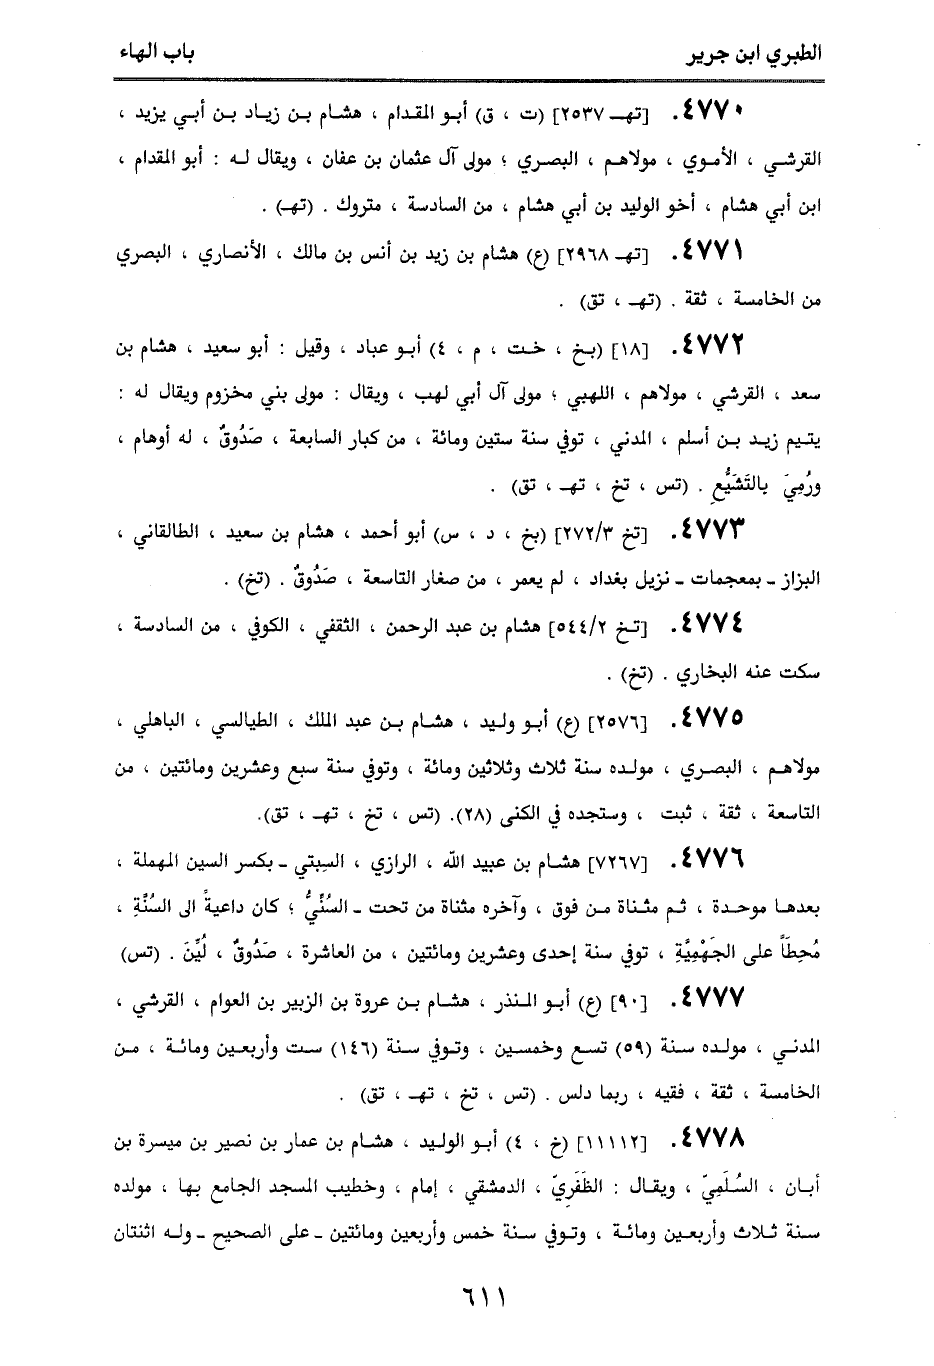 الطبري ابن جرير
باب الهاء
٤٧٧٠. [تهـ ٢٥٣٧] (ت ، ق) أبو المقدام ، هشام بن زياد بن أبي يزيد ،
القرشي ، الأموي ، مولاهم ، البصري ؛ مولى آل عثمان بن عفان ، ويقال له : أبو المقدام ،
ابن أبي هشام ، أخو الوليد بن أبي هشام ، من السادسة ، متروك . (تهـ) .
٤٧٧١. [تهـ ٢٩٦٨] (ع) هشام بن زيد بن أنس بن مالك ، الأنصاري ، البصري
من الخامسة ، ثقة . (تهـ ، تق) .
٤٧٧٢. [١٨] (بخ ، خت ، م ، ٤) أبو عباد ، وقيل : أبو سعيد ، هشام بن
سعد ، القرشي ، مولاهم ، اللهبي ؛ مولى آل أبي لهب ، ويقال : مولى بني مخزوم ويقال له :
يتيم زيد بن أسلم ، المدني ، توفي سنة ستين ومائة ، من كبار السابعة ، صَدُوقٌ ، له أوهام ،
ورُمِيَ بالتَشَيُّعِ . (تس ، تخ ، تهـ ، تق) .
٤٧٧٣. [تخ ٢٧٢/٣] (بخ ، د ، س) أبو أحمد ، هشام بن سعيد ، الطالقاني ،
البزاز ـ بمعجمات ـ نزيل بغداد ، لم يعمر ، من صغار التاسعة ، صَدُوقٌ . (تخ) .
٤٧٧٤. [تخ ٥٤٤/٢] هشام بن عبد الرحمن ، الثقفي ، الكوفي ، من السادسة ،
سكت عنه البخاري . (تخ) .
٤٧٧٥. [٢٥٧٦] (ع) أبو وليد ، هشام بن عبد الملك ، الطيالسي ، الباهلي ،
مولاهم ، البصري ، مولده سنة ثلاث وثلاثين ومائة ، وتوفي سنة سبع وعشرين ومائتين ، من
التاسعة ، ثقة ، ثبت ، وستجده في الكنى (٢٨). (تس ، تخ ، تهـ ، تق).
٤٧٧٦. [٧٢٦٧] هشام بن عبيد الله ، الرازي ، السِبتي ـ بكسر السين المهملة ،
بعدها موحدة ، ثم مثناة من فوق ، وآخره مثناة من تحت ـ السُنِّيُّ ؛ كان داعيةً الى السُنَّةِ ،
مُحِطَاً على الجَهْمِيَّةِ ، توفي سنة إحدى وعشرين ومائتين ، من العاشرة ، صَدُوقٌ ، لُيِّنَ . (تس)
٤٧٧٧. [٩٠] (ع) أبو المنذر ، هشام بن عروة بن الزبير بن العوام ، القرشي ،
المدني ، مولده سنة (٥٩) تسع وخمسين ، وتوفي سنة (١٤٦) ست وأربعين ومائة ، من
الخامسة ، ثقة ، فقيه ، ربما دلس . (تس ، تخ ، تهـ ، تق) .
٤٧٧٨. [١١١١٢] (خ ، ٤) أبو الوليد ، هشام بن عمار بن نصير بن ميسرة بن
أبان ، السُلَمِيّ ، ويقال : الظَفَرِيّ ، الدمشقي ، إمام ، وخطيب المسجد الجامع بها ، مولده
سنة ثلاث وأربعين ومائة ، وتوفي سنة خمس وأربعين ومائتين ـ على الصحيح ـ وله اثنتان
٦١١